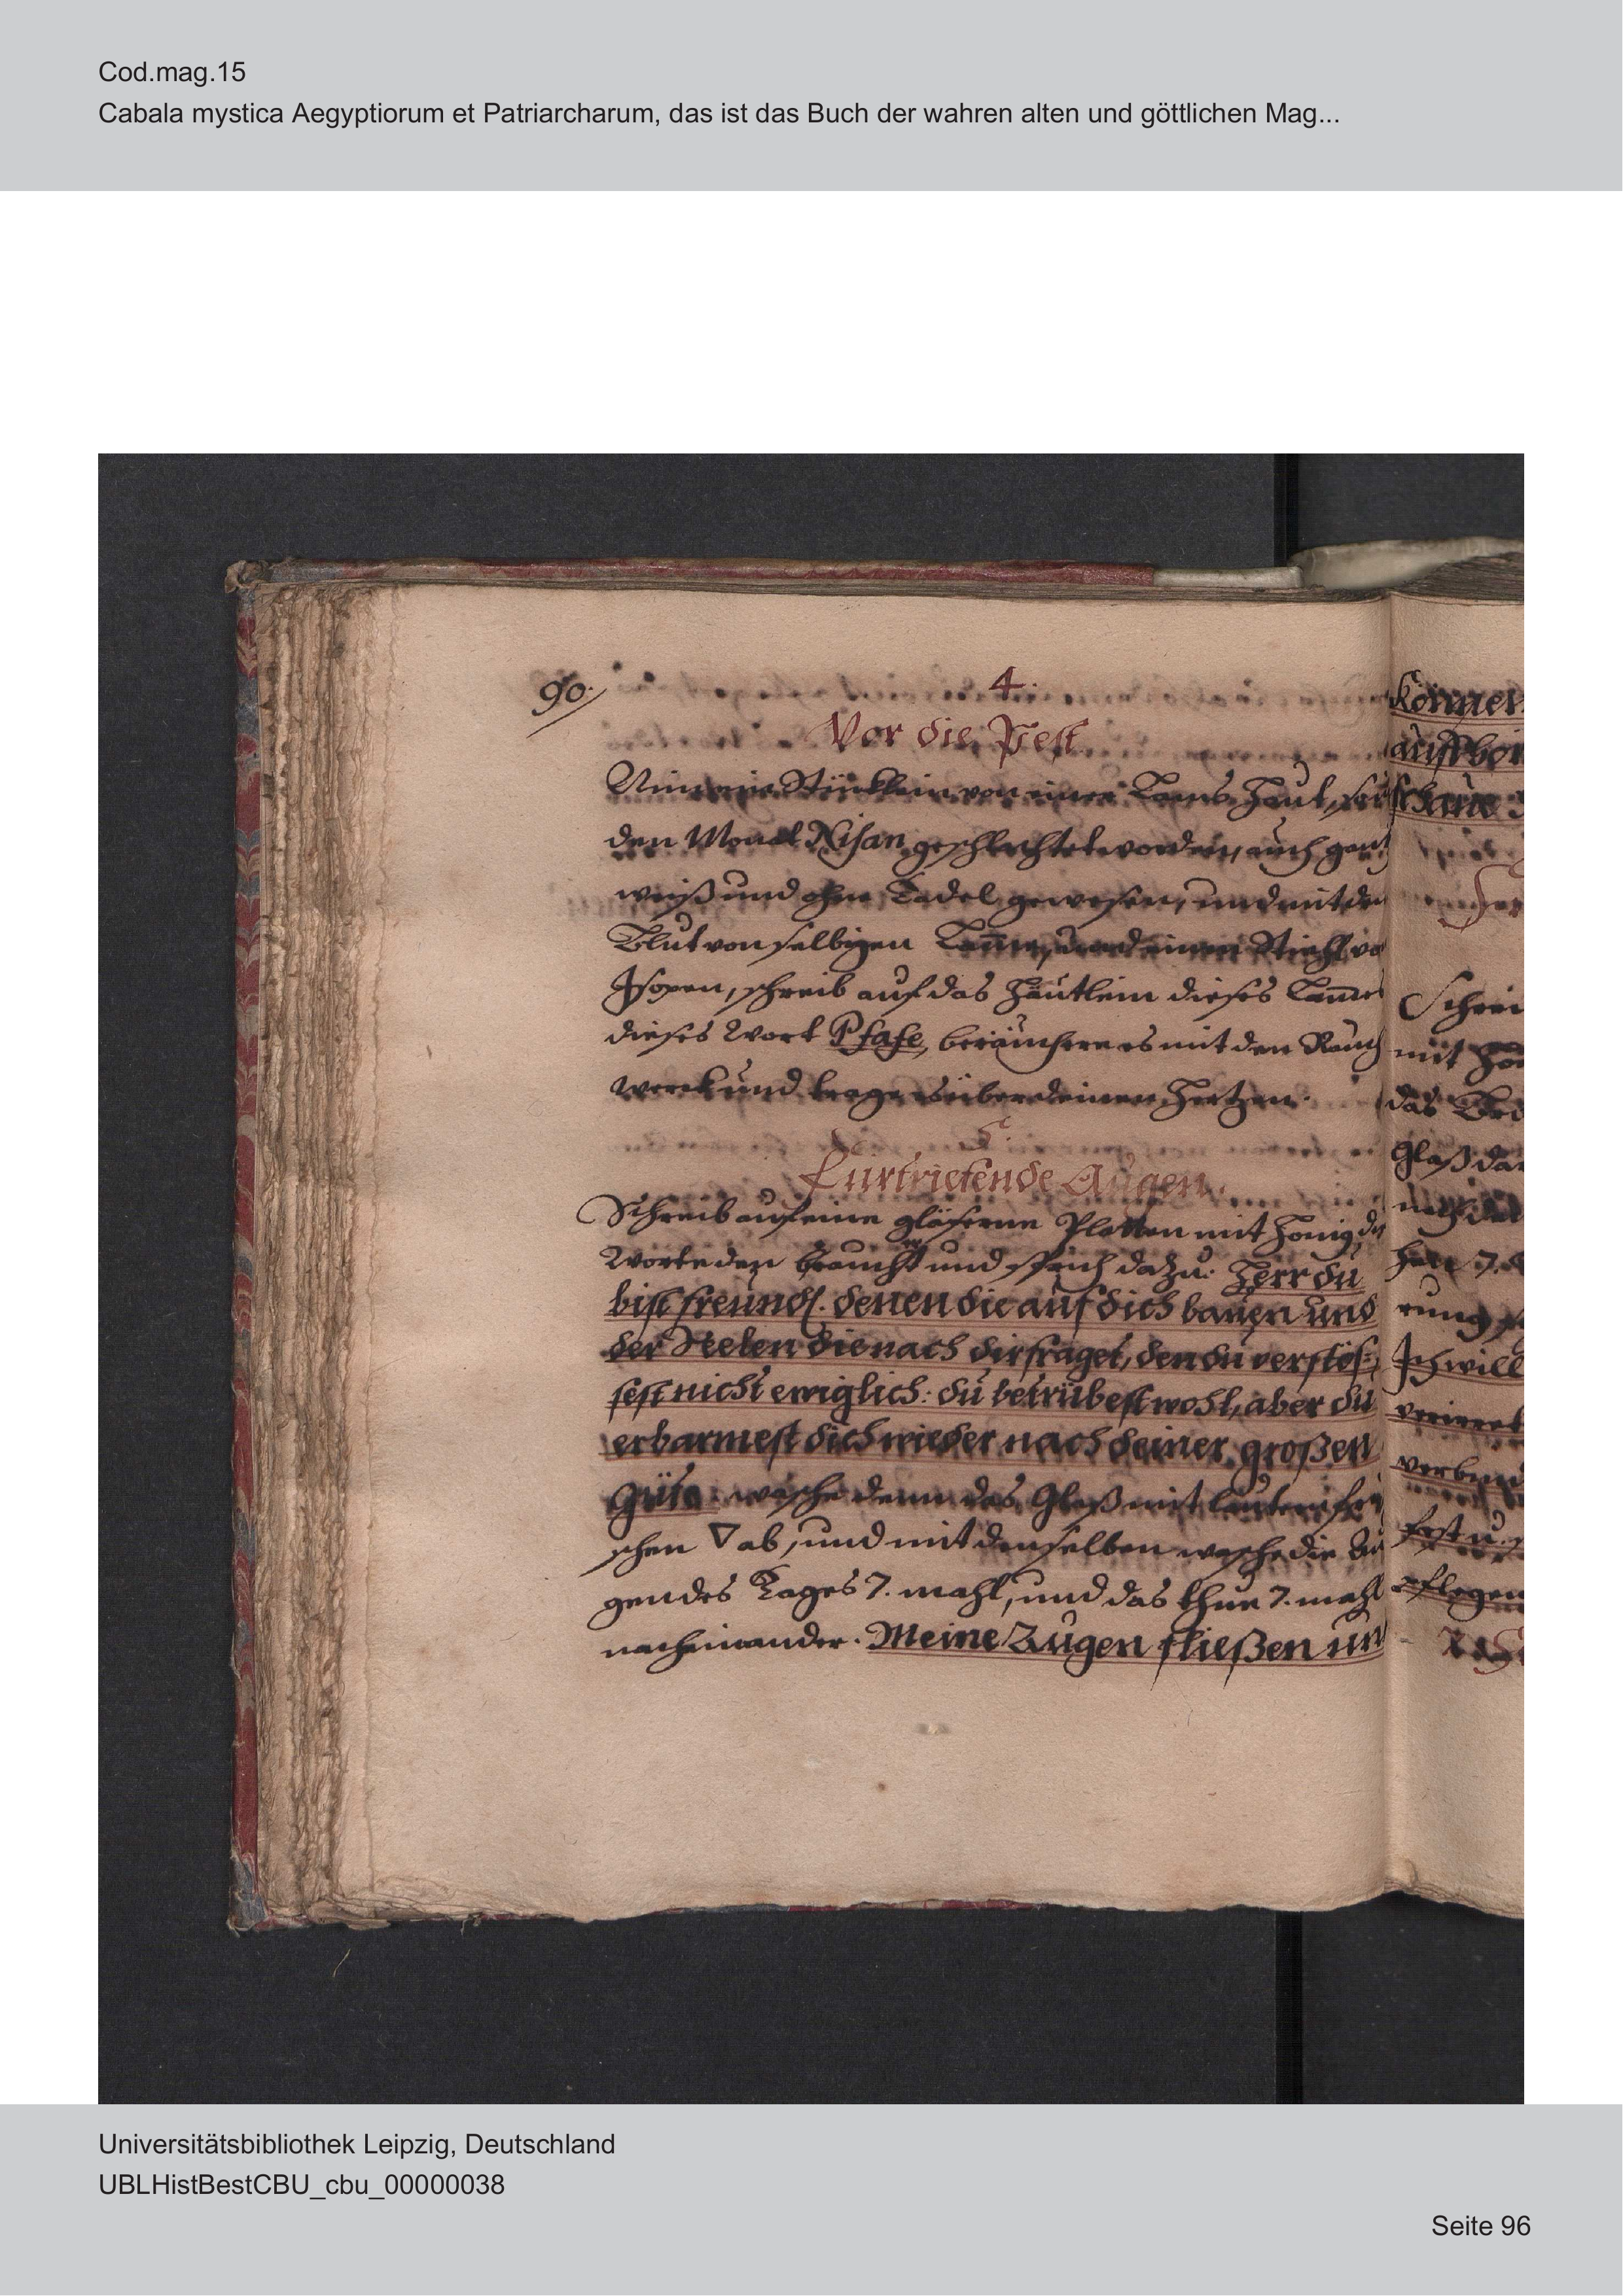 Cod.mag.15
Cabala mystica Aegyptiorum et Patriarcharum, das ist das Buch der wahren alten und göttlichen Mag...
90.
4.
Vor die Pest
Nim ein Stücklein von einer Lams Haut, so
den Monat Nisan geschlachtet worden, auch gantz
weiß und ohne Tadel gewesen, und mit den
Blut von selbigen Lamme, und einen Stiehl vo
Isopen, schreib auf das Häutlein dieses Lammes
dieses Wort Psase, beräuchere es mit den Rauch
werck und trage es über deinen Hertzen.
5.
Für triefende Augen.
Schreib auf eine gläserne Platten mit Honig die
Worte den braucht und sprich dazu: Herr du
bist freundl. denen die auf dich bauen und
der Seelen die nach dir fraget, den du verstös-
sest nicht ewiglich: du betrübest wohl, aber du
erbarmest dich wieder nach deiner großen
Güte. wasche denn das Glaß mit lautern fri
schen ▽ ab, und mit denselben wasche die Au
gen des Tages 7. mahl, und das thue 7. mahl
nacheinander. Meine Augen fließen un
können
schaue
Schrei
mit Ho
das
Glaß da
rung
Ich will
verirret
pflegen
Universitätsbibliothek Leipzig, Deutschland
UBLHistBestCBU_cbu_00000038
Seite 96